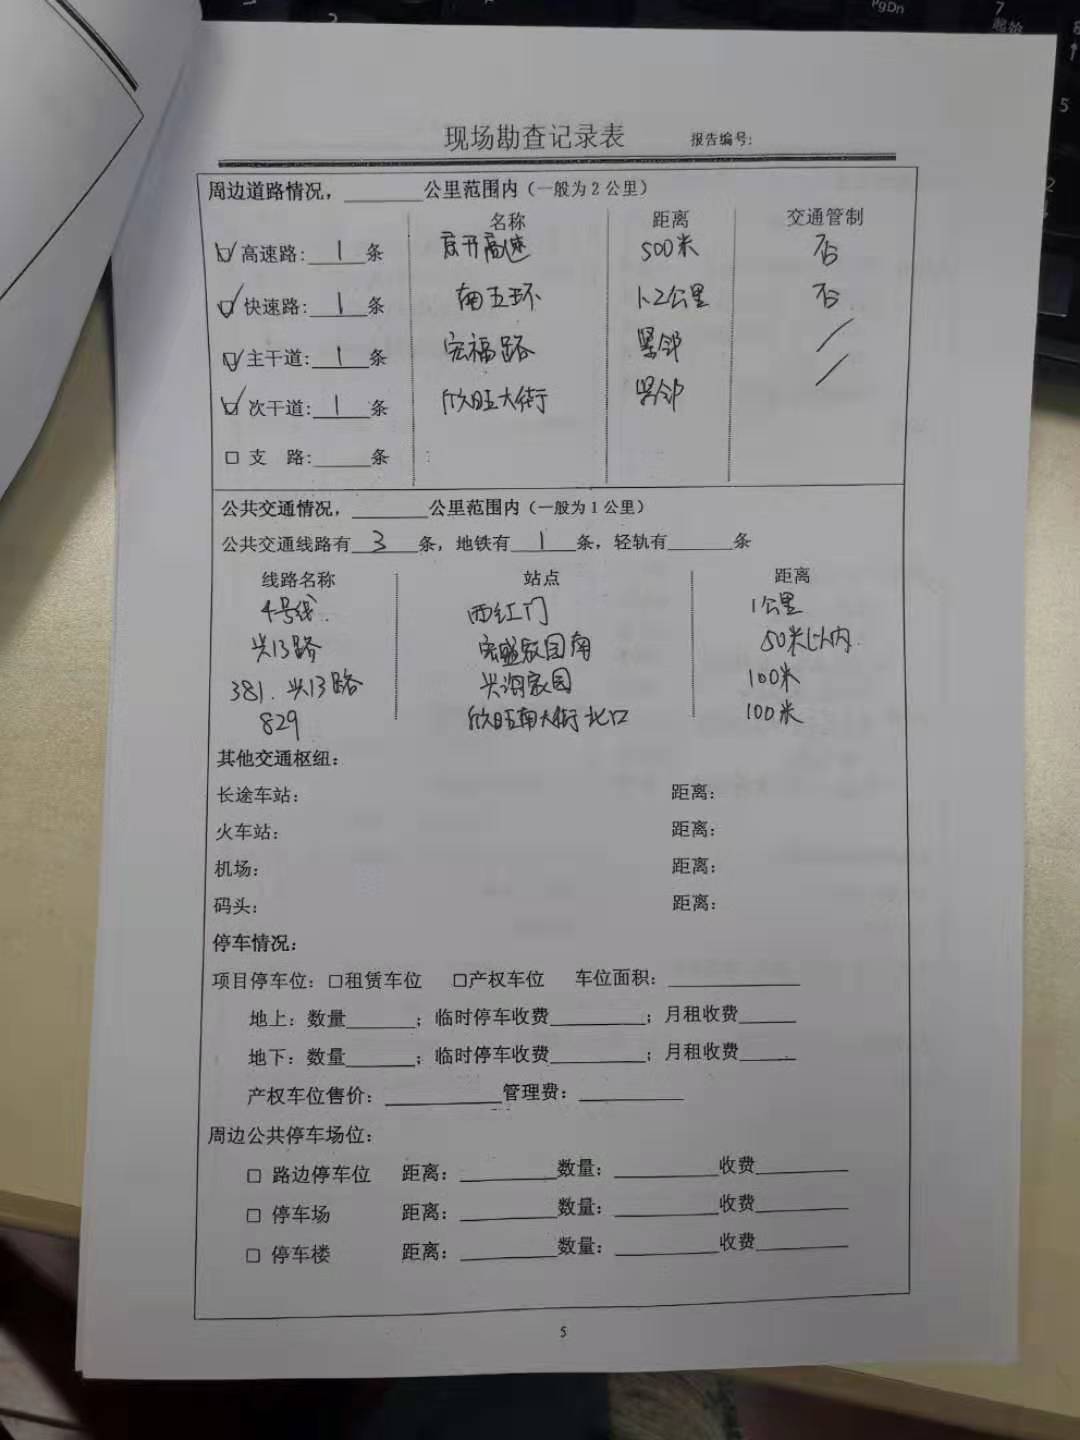 PgDn
7
起始
8
5
2
现场勘查记录表 报告编号:
周边道路情况，______公里范围内（一般为2公里）
名称 距离 交通管制
☑ 高速路: 1 条 京开高速 500米 否
☑ 快速路: 1 条 南五环 1.2公里 否
☑ 主干道: 1 条 宏福路 紧邻 /
☑ 次干道: 1 条 欣旺大街 紧邻 /
□ 支 路:____条
公共交通情况，______公里范围内（一般为1公里）
公共交通线路有 3 条，地铁有 1 条，轻轨有_____条
线路名称 站点 距离
4号线 西红门 1公里
兴13路 宏盛家园南 50米以内
381.兴13路 兴海家园 100米
829 欣旺南大街北口 100米
其他交通枢纽：
长途车站： 距离：
火车站： 距离：
机场： 距离：
码头： 距离：
停车情况：
项目停车位：□租赁车位 □产权车位 车位面积：__________
地上：数量_____；临时停车收费_______；月租收费____
地下：数量_____；临时停车收费_______；月租收费____
产权车位售价：_________管理费：________
周边公共停车场位：
□ 路边停车位 距离：_______数量：________收费_______
□ 停车场 距离：_______数量：________收费_______
□ 停车楼 距离：_______数量：________收费_______
5